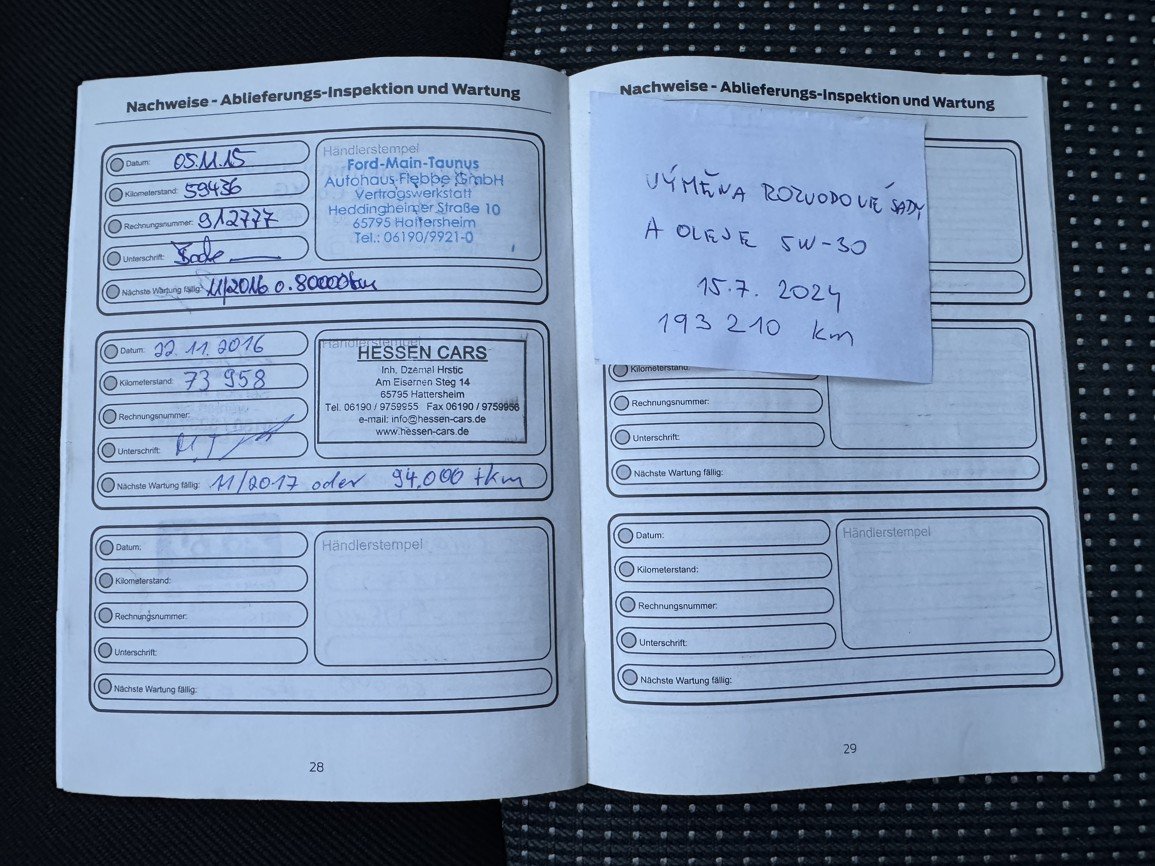 Nachweise - Ablieferungs-Inspektion und Wartung
Datum: 05.11.15
Kilometerstand: 59436
Rechnungsnummer: 912777
Unterschrift:
Nächste Wartung fällig: 11/2016 o. 80000 km
Händlerstempel
Ford-Main-Taunus
Autohaus Flebbe GmbH
Vertragswerkstatt
Heddingheimer Straße 10
65795 Hattersheim
Tel.: 06190/9921-0
Datum: 22.11.2016
Kilometerstand: 73 958
Rechnungsnummer:
Unterschrift:
Nächste Wartung fällig: 11/2017 oder 94.000 tkm
Händlerstempel
HESSEN CARS
Inh. Dzemal Hrstic
Am Eisernen Steg 14
65795 Hattersheim
Tel. 06190 / 9759955 Fax 06190 / 9759956
e-mail: info@hessen-cars.de
www.hessen-cars.de
Datum:
Kilometerstand:
Rechnungsnummer:
Unterschrift:
Nächste Wartung fällig:
Händlerstempel
28
Nachweise - Ablieferungs-Inspektion und Wartung
VÝMĚNA ROZVODOVÉ SADY
A OLEJE 5W-30
15.7. 2024
193 210 km
Kilometerstand:
Rechnungsnummer:
Unterschrift:
Nächste Wartung fällig:
Datum:
Kilometerstand:
Rechnungsnummer:
Unterschrift:
Nächste Wartung fällig:
Händlerstempel
29